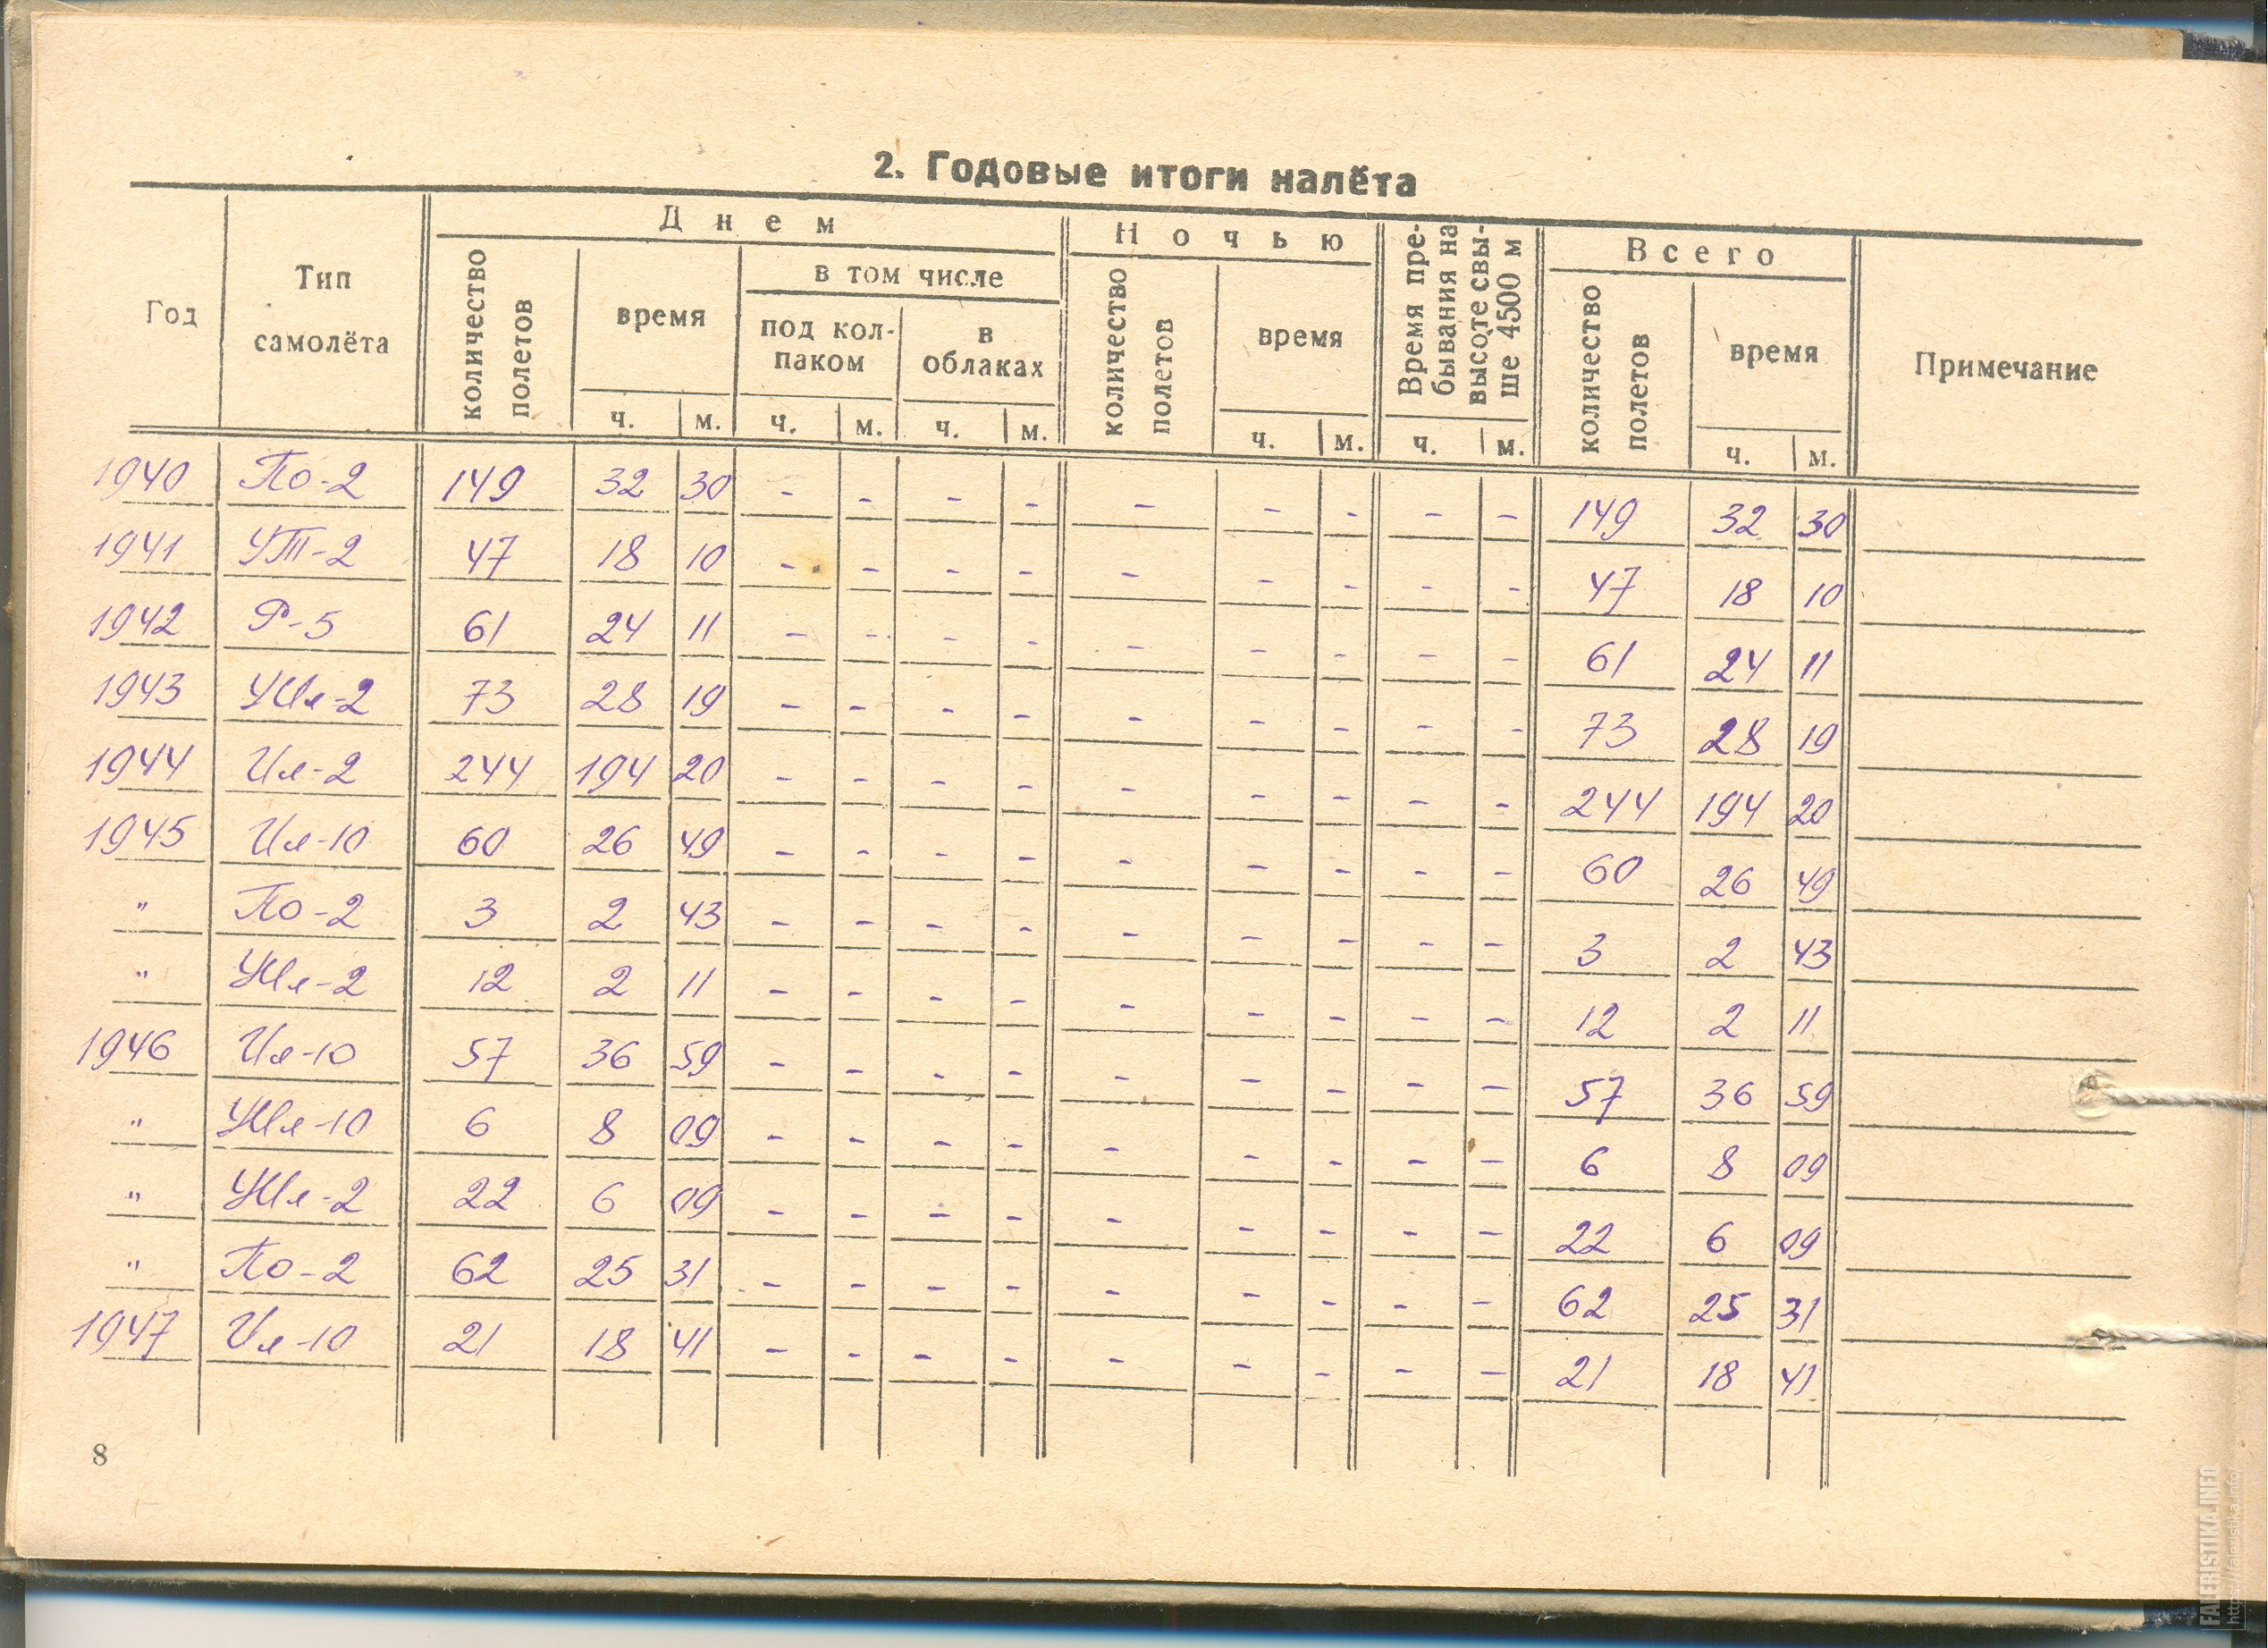 2. Годовые итоги налёта
Год
Тип самолёта
Днем
количество полетов
время
ч. м.
в том числе
под кол-
паком
ч. м.
в
облаках
ч. м.
Ночью
количество полетов
время
ч. м.
Время пре-
бывания на
высоте свы-
ше 4500 м
ч. м.
Всего
количество полетов
время
ч. м.
Примечание
1940 По-2 149 32 30 - - - - - - - - - 149 32 30
1941 УТ-2 47 18 10 - - - - - - - - - 47 18 10
1942 Р-5 61 24 11 - - - - - - - - - 61 24 11
1943 УИл-2 73 28 19 - - - - - - - - - 73 28 19
1944 Ил-2 244 194 20 - - - - - - - - - 244 194 20
1945 Ил-10 60 26 49 - - - - - - - - - 60 26 49
" По-2 3 2 43 - - - - - - - - - 3 2 43
" УИл-2 12 2 11 - - - - - - - - - 12 2 11
1946 Ил-10 57 36 59 - - - - - - - - - 57 36 59
" УИл-10 6 8 09 - - - - - - - - - 6 8 09
" УИл-2 22 6 09 - - - - - - - - - 22 6 09
" По-2 62 25 31 - - - - - - - - - 62 25 31
1947 Ил-10 21 18 41 - - - - - - - - - 21 18 41
8
FALERISTIKA.INFO
https://faleristika.info/